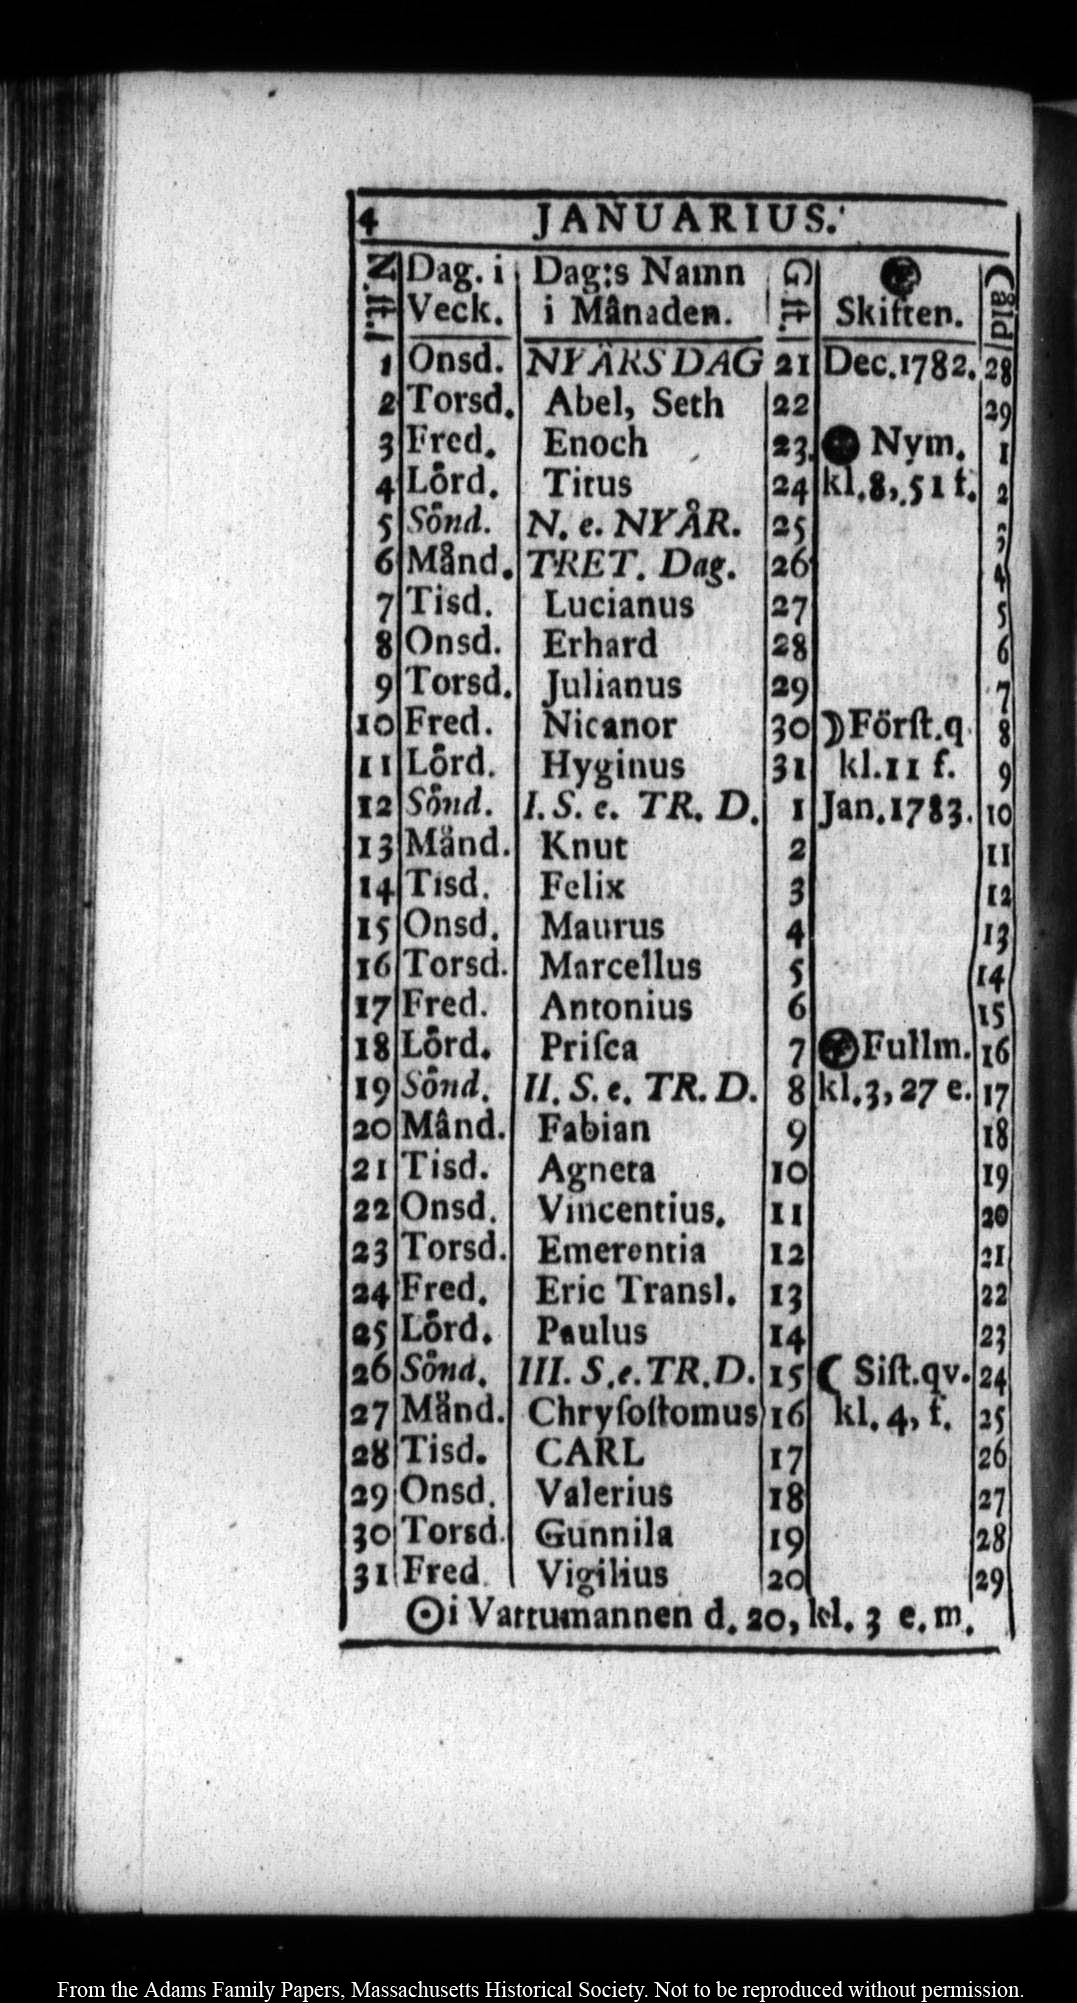 4 JANUARIUS.
N. ſt. Dag. i Veck. Dag:s Namn i Månaden. G. ſt. Skiften. åld
1 Onsd. NYÅRSDAG 21 Dec. 1782. 28
2 Torsd. Abel, Seth 22 29
3 Fred. Enoch 23. Nym. 1
4 Lörd. Titus 24 kl. 8, 51 f. 2
5 Sönd. N. e. NYÅR. 25 3
6 Månd. TRET. Dag. 26 4
7 Tisd. Lucianus 27 5
8 Onsd. Erhard 28 6
9 Torsd. Julianus 29 7
10 Fred. Nicanor 30 ☽ Förſt. q 8
11 Lörd. Hyginus 31 kl. 11 f. 9
12 Sönd. I. S. e. TR. D. 1 Jan. 1783. 10
13 Månd. Knut 2 11
14 Tisd. Felix 3 12
15 Onsd. Maurus 4 13
16 Torsd. Marcellus 5 14
17 Fred. Antonius 6 15
18 Lörd. Priſca 7 Fullm. 16
19 Sönd. II. S. e. TR. D. 8 kl. 3, 27 e. 17
20 Månd. Fabian 9 18
21 Tisd. Agneta 10 19
22 Onsd. Vincentius. 11 20
23 Torsd. Emerentia 12 21
24 Fred. Eric Transl. 13 22
25 Lörd. Paulus 14 23
26 Sönd. III. S. e. TR. D. 15 ☾ Siſt. qv. 24
27 Månd. Chryſoſtomus 16 kl. 4, f. 25
28 Tisd. CARL 17 26
29 Onsd. Valerius 18 27
30 Torsd. Gunnila 19 28
31 Fred. Vigilius 20 29
☉ i Vattumannen d. 20, kl. 3 e. m.
From the Adams Family Papers, Massachusetts Historical Society. Not to be reproduced without permission.